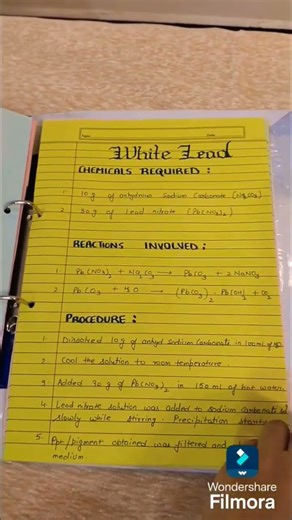 White Lead
CHEMICALS REQUIRED :
1. 10 g of anhydrous Sodium Carbonate (Na2CO3)
2. 30 g of Lead nitrate (Pb(NO3)2)
REACTIONS INVOLVED :
1. Pb(NO3)2 + Na2CO3 → PbCO3 + 2NaNO3
2. PbCO3 + H2O → (PbCO3)2. Pb(OH)2 + CO2
PROCEDURE :
1. Dissolved 10 g of anhyd Sodium Carbonate in 100 ml of H2O
2. Cool the solution to room temperature.
3. Added 30 g of Pb(NO3)2 in 150 ml of hot water
4. Lead nitrate solution was added to sodium Carbonate
slowly while stirring. Precipitation
5. Ppt/pigment obtained was filtered and
medium
Wondershare
Filmora